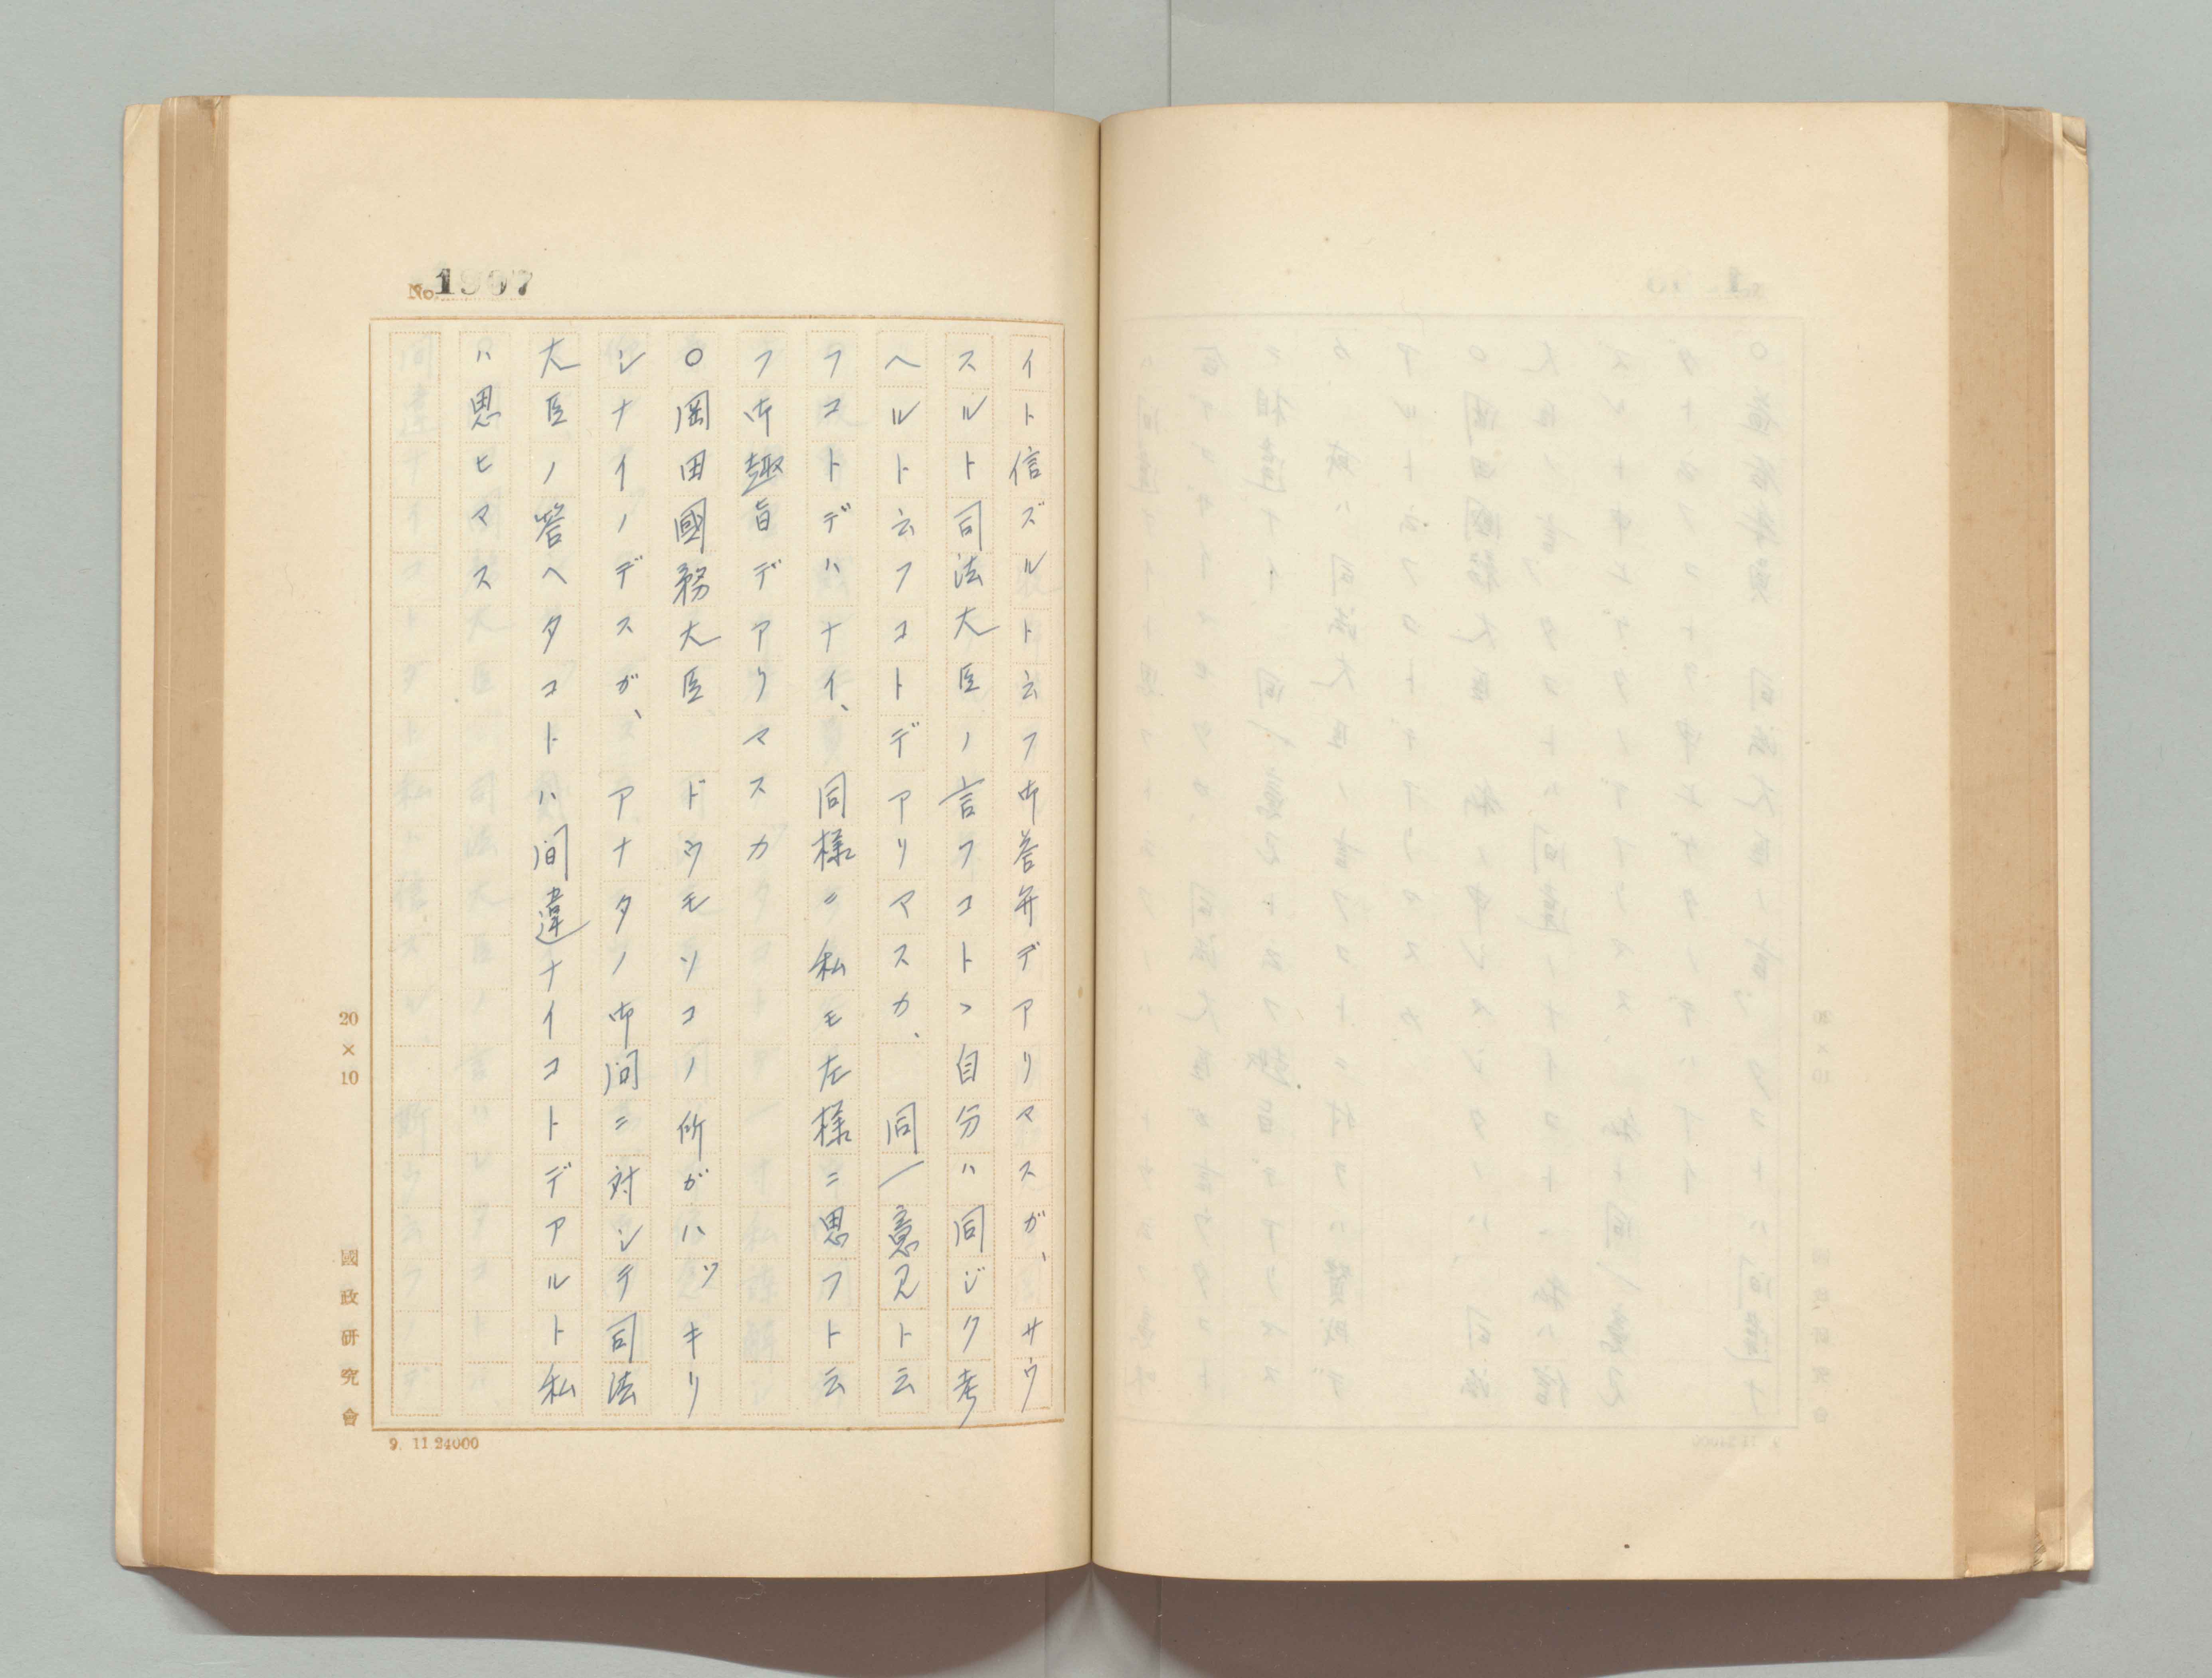 No. 1907
イト信ズルト云フ御答弁デアリマスガ、サウ
スルト司法大臣ノ言フコトヽ自分ハ同ジク考
ヘルト云フコトデアリマスカ、同一意見ト云
フコトデハナイ、同様ク私モ左様ニ思フト云
フ御趣旨デアリマスカ
○岡田國務大臣　ドウモソコノ所ガハツキリ
シナイノデスガ、アナタノ御問ニ対シテ司法
大臣ノ答ヘタコトハ間違ナイコトデアルト私
ハ思ヒマス
20×10
國政研究會
9. 11 24000